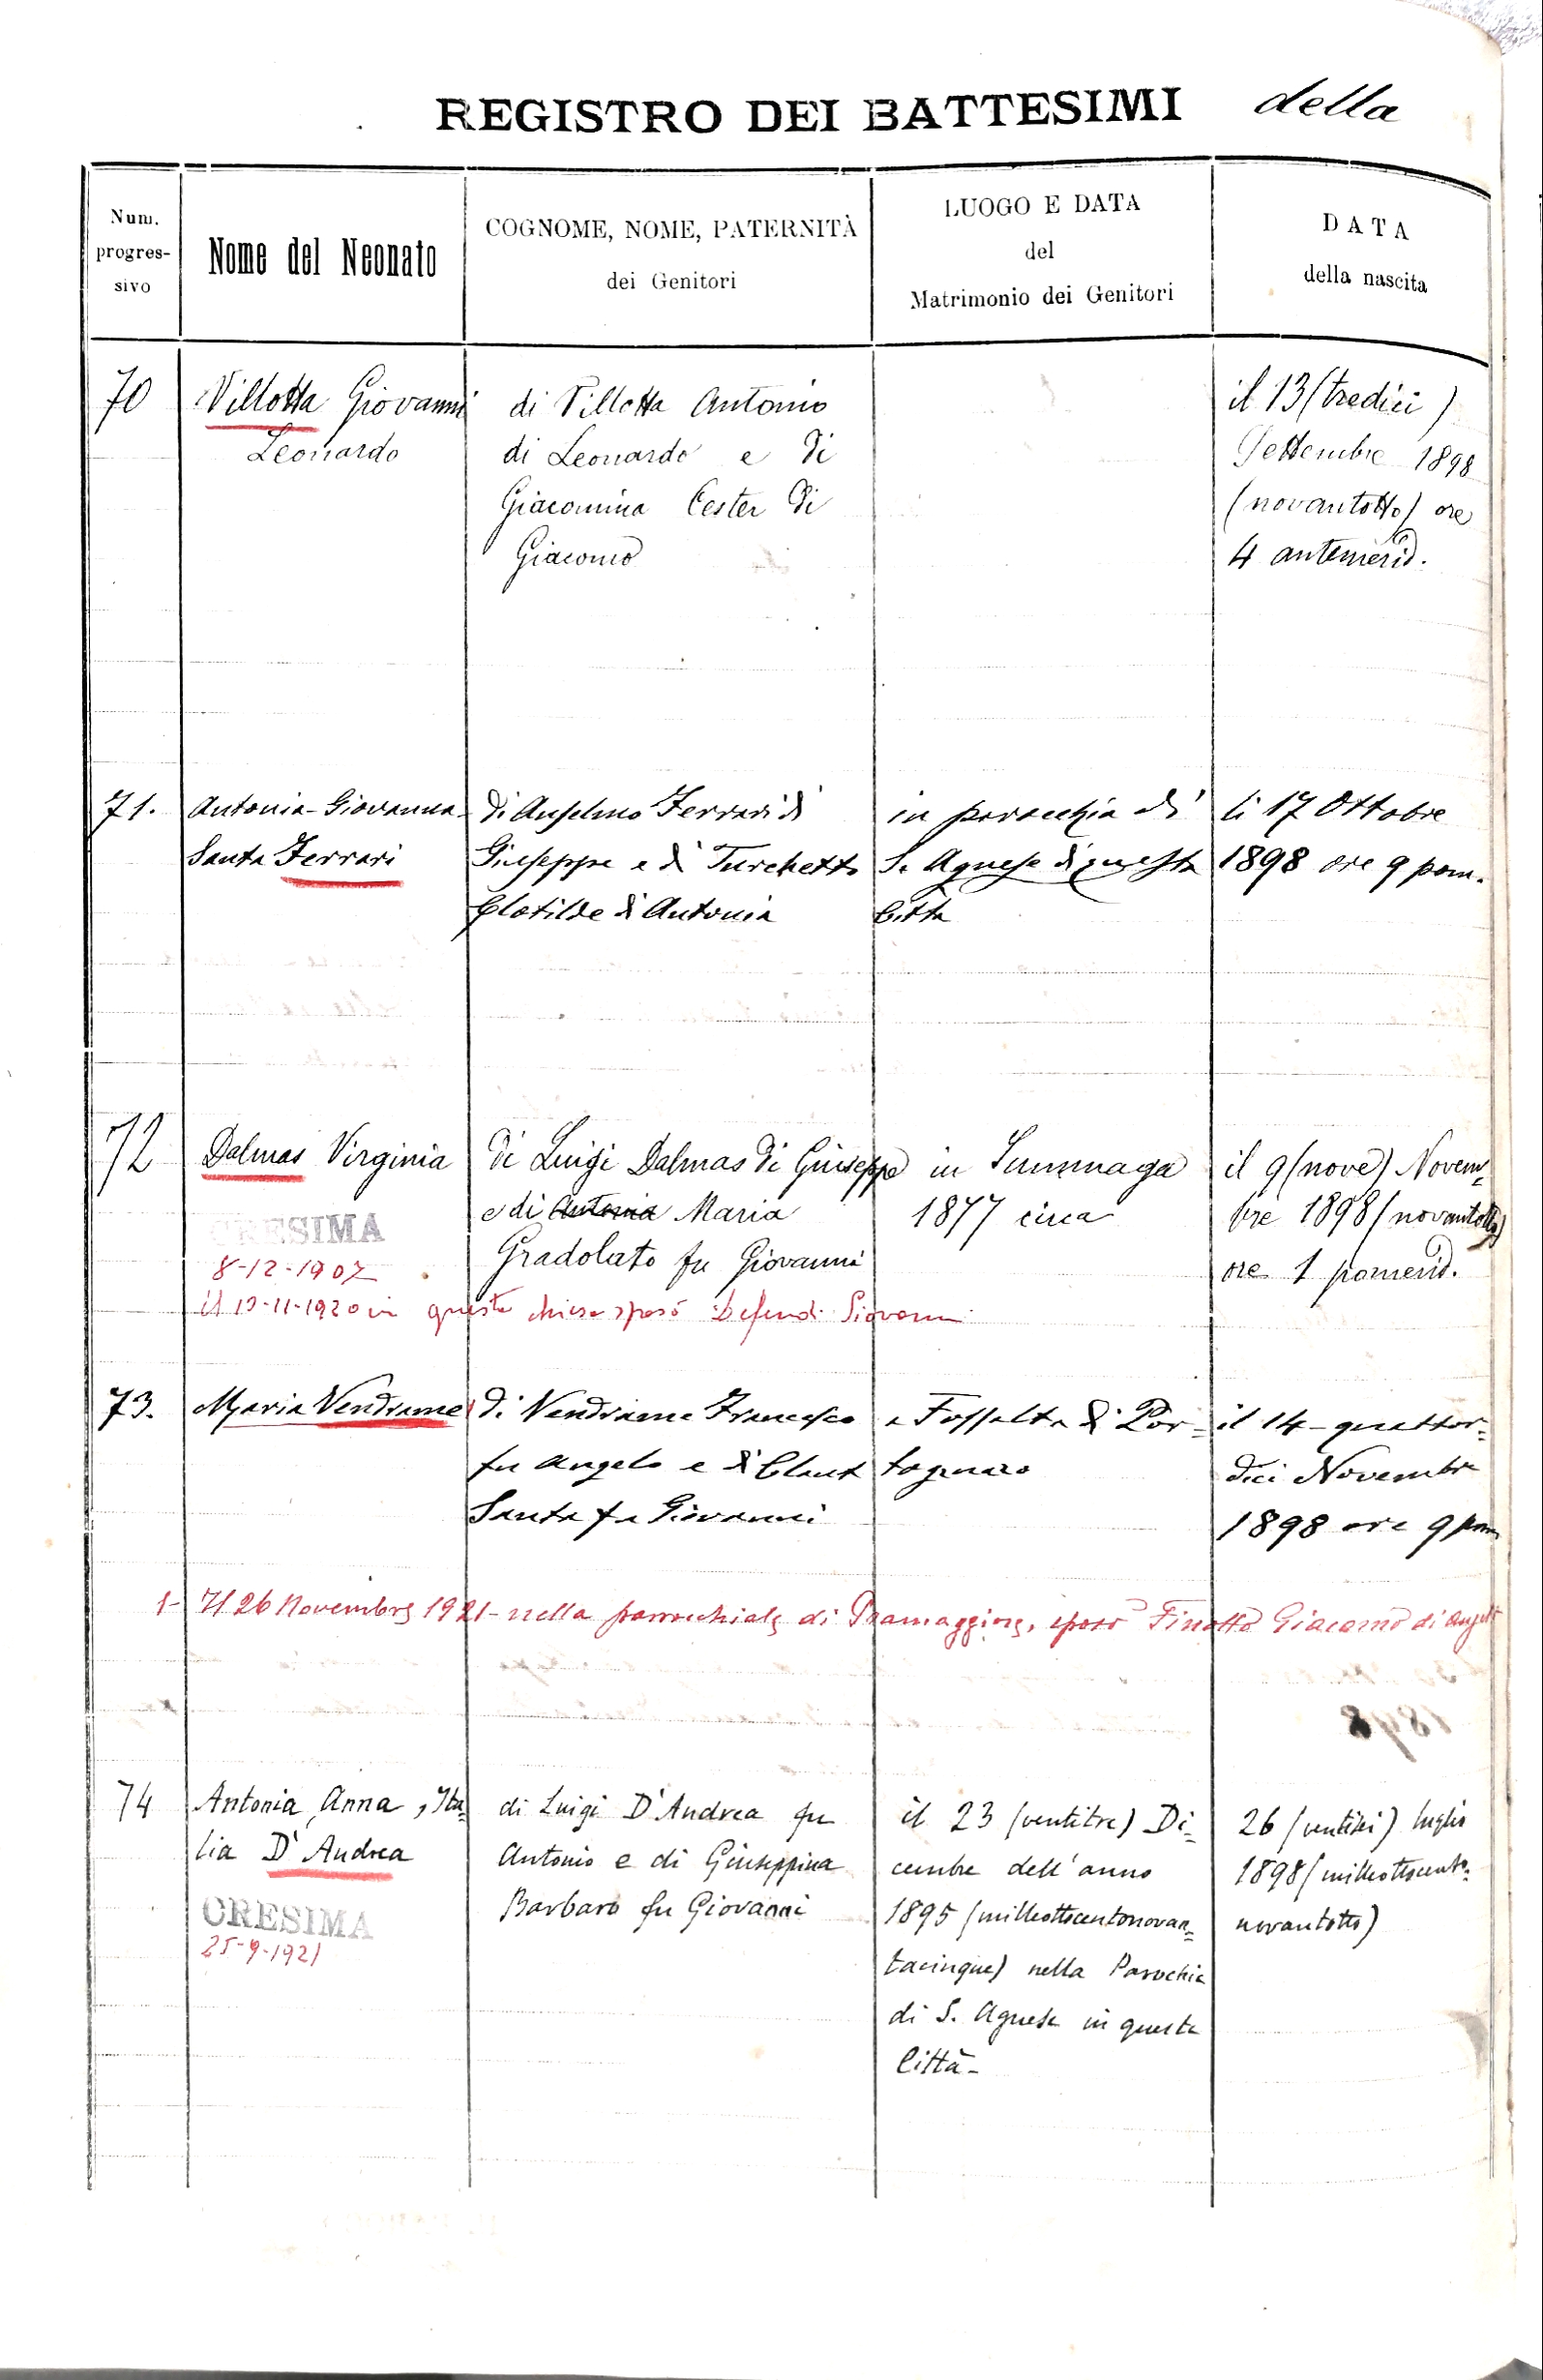 REGISTRO DEI BATTESIMI della
Num. progres- sivo
Nome del Neonato
COGNOME, NOME, PATERNITÀ
dei Genitori
LUOGO E DATA
del
Matrimonio dei Genitori
DATA
della nascita
70
Villotta Giovanni
Leonardo
di Villotta Antonio
di Leonardo e di
Giacomina Cester di
Giacomo
il 13 (tredici)
Settembre 1898
(novantotto) ore
4 antemerid.
71.
Antonia-Giovanna
Santa Ferrari
di Anselmo Ferrari di
Giuseppe e di Turchetto
Clotilde di Antonio
in parocchia di
S. Agnese di questa
Città
li 17 Ottobre
1898 ore 9 pom.
72
Dalmas Virginia
CRESIMA
8-12-1907
di Luigi Dalmas di Giuseppe
e di Antonia Maria
Gradolato fu Giovanni
in Summaga
1877 circa
il 9 (nove) Novem=
bre 1898 (novantotto)
ore 1 pomerid.
il 13-11-1920 in questa chiesa sposò Giovanni
73.
Maria Vendrame
di Vendrame Francesco
fu Angelo e di Claut
Santa fu Giovanni
a Fossalta di Por=
togruaro
il 14-quattor=
dici Novembre
1898 ore 9 pom
1- Il 26 Novembre 1921- nella parrocchiale di Pramaggiore, sposò Finotto Giacomo di Angelo
74
Antonia, Anna, Ita=
lia D'Andrea
CRESIMA
25-9-1921
di Luigi D'Andrea fu
Antonio e di Giuseppina
Barbaro fu Giovanni
il 23 (ventitre) Di=
cembre dell'anno
1895 (milleottocentonovan=
tacinque) nella Parochia
di S. Agnese in questa
Città-
26 (ventisei) luglio
1898 (milleottocento=
novantotto)